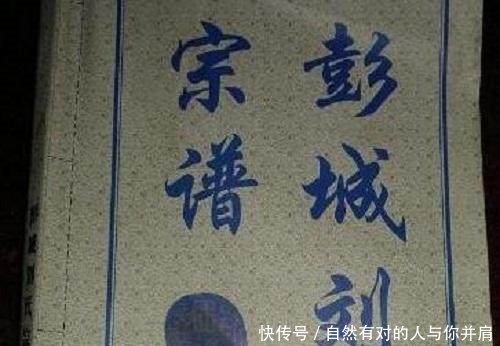 彭城刘
宗谱
快传号/自然有对的人与你并肩